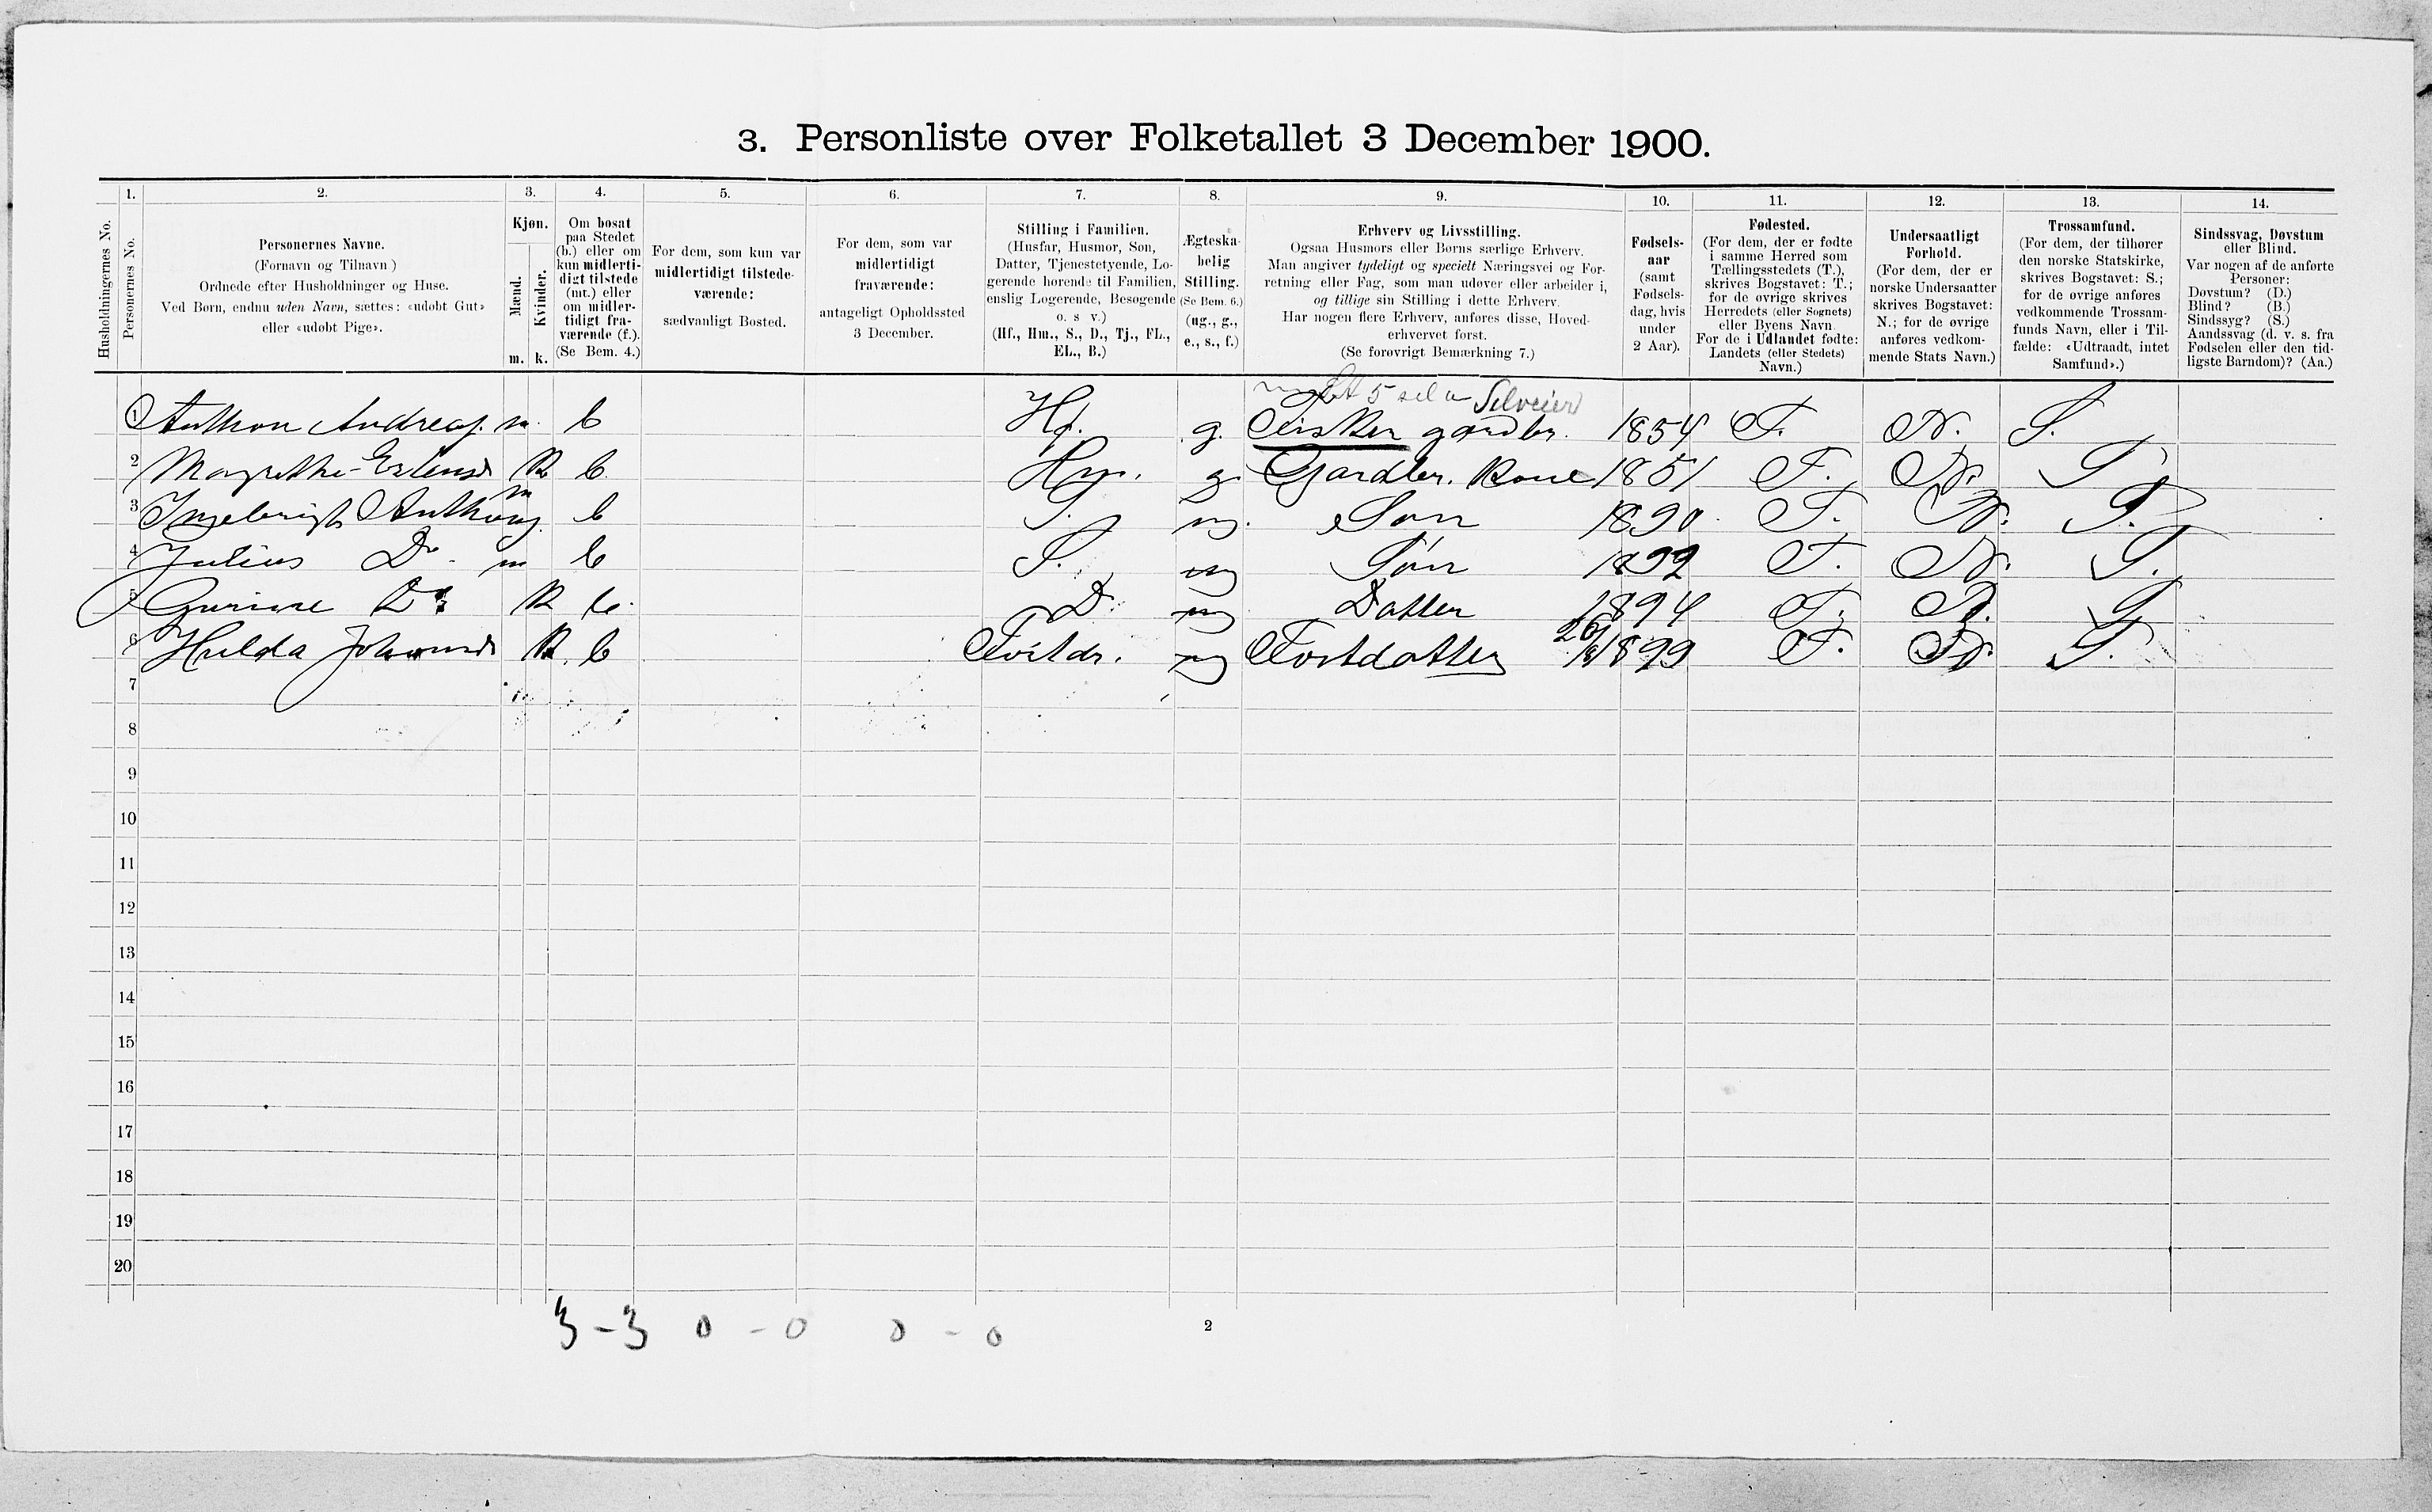 3. Personliste over Folketallet 3 December 1900.
1. 2. 3. 4. 5. 6. 7. 8. 9. 10. 11. 12. 13. 14.
Husholdningernes No.
Personernes No.
Personernes Navne.
(Fornavn og Tilnavn)
Ordnede efter Husholdninger og Huse.
Ved Børn, endnu uden Navn, sættes: «udøbt Gut»
eller «udøbt Pige».
Kjøn.
Mænd.
Kvinder.
m. k.
Om bosat
paa Stedet
(b.) eller om
kun midlerti-
digt tilstede
(mt.) eller
om midler-
tidigt fra-
værende (f.).
(Se Bem. 4.)
For dem, som kun var
midlertidigt tilstede-
værende:
sædvanligt Bosted.
For dem, som var
midlertidigt
fraværende:
antageligt Opholdssted
3 December.
Stilling i Familien.
(Husfar, Husmor, Søn,
Datter, Tjenestetyende, Lo-
gerende hørende til Familien,
enslig Logerende, Besøgende
o. s v.)
(Hf., Hm., S., D., Tj., FL.,
EL., B.)
Ægteska-
belig
Stilling.
(Se Bem. 6.)
(ug., g.,
e., s., f.)
Erhverv og Livsstilling.
Ogsaa Husmors eller Børns særlige Erhverv.
Man angiver tydeligt og specielt Næringsvei og For-
retning eller Fag, som man udøver eller arbeider i,
og tillige sin Stilling i dette Erhverv.
Har nogen flere Erhverv, anføres disse, Hoved-
erhvervet først.
(Se forøvrigt Bemærkning 7.)
Fødsels-
aar
(samt
Fødsels-
dag, hvis
under
2 Aar).
Fødested.
(For dem, der er fødte
i samme Herred som
Tællingsstedets (T.),
skrives Bogstavet: T.;
for de øvrige skrives
Herredets (eller Sognets)
eller Byens Navn.
For de i Udlandet fødte:
Landets (eller Stedets)
Navn.)
Undersaatligt
Forhold.
(For dem, der er
norske Undersaatter
skrives Bogstavet:
N.; for de øvrige
anføres vedkom-
mende Stats Navn.)
Trossamfund.
(For dem, der tilhører
den norske Statskirke,
skrives Bogstavet: S.;
for de øvrige anføres
vedkommende Trossam-
funds Navn, eller i Til-
fælde: «Udtraadt, intet
Samfund».)
Sindssvag, Døvstum
eller Blind.
Var nogen af de anførte
Personer:
Døvstum? (D.)
Blind? (B.)
Sindssyg? (S.)
Aandssvag (d. v. s. fra
Fødselen eller den tid-
ligste Barndom)? (Aa.)
Selveier
1 Anthon Andreas. m. b Hf. g. Fisker gardbr. 1854 T. N. S.
2 Margrethe Erlensd k b Hm. g Gardbr. Kone 1851 T. N. S
3 Ingebrigt Anthons. m b S. ug. Søn 1890 T. N. S.
4 Julius Do m b S. ug Søn 1892 T. N. S.
5 Gurine Do k b. D. ug Datter 1894 T. N. S
6 Hulda Johannsd k. b Fostdr. ug Fostdatter 1899 T. N. S.
7
8
9
10
11
12
13
14
15
16
17
18
19
20
3 - 3 0 - 0 0 - 0
2